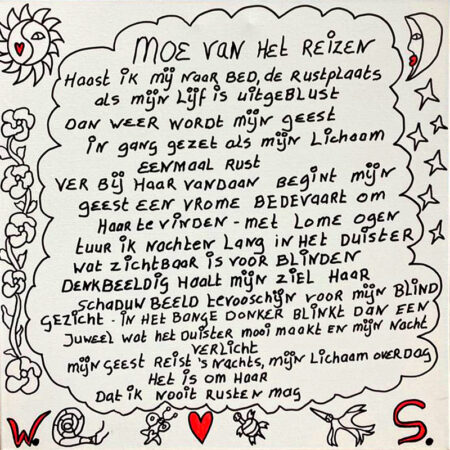 MOE VAN HET REIZEN
Haast ik mij naar BED, de RUSTPLAATS
als mijn lijf is uitgeblust
DAN WEER WORDT mijn geest
in gang gezet als mijn Lichaam
EENMAAL RUST
VER BIJ HAAR VANDAAN BEGINT mijn
geest een vrome bedevaart om
HAAR te vinden - met lome ogen
tuur ik nachten lang in het duister
wat zichtbaar is voor blinden
DENKBEELDIG HAALT mijn ZIEL HAAR
SCHADUW BEELD tevooschijn voor mijn BLIND
GEZICHT - IN HET BANGE DONKER BLINKT DAN EEN
JUWEEL WAT HET DUISTER mooi maakt en mijn NACHT
VERLICHT
mijn geest REIST 's NACHTS, mijn LICHAAM OVERDAG
HET is om HAAR
DAT ik NOOIT RUSTEN mag
W. S.